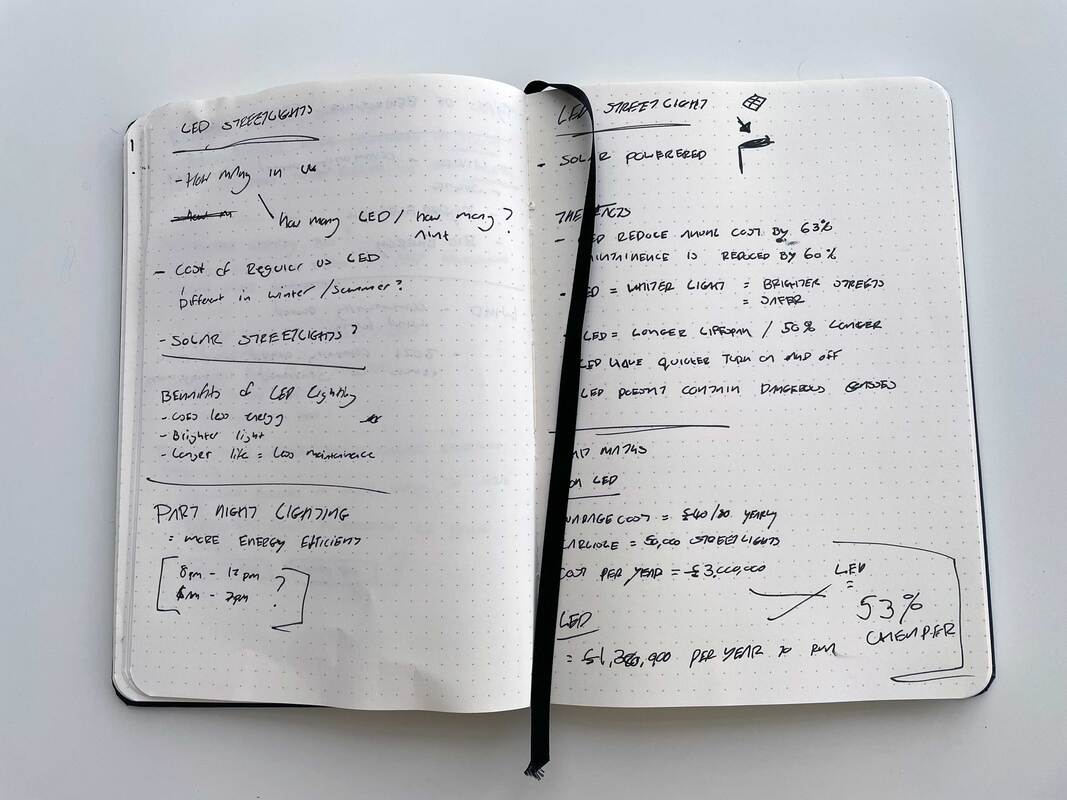 LED STREETLIGHTS
- How many in UK
How many LED / how many ?
- Cost of Regular vs LED
Different in winter / summer?
- SOLAR STREETLIGHTS?
Bennifits of LED Lighting
- Uses less energy
- Brighter light
- Longer life = Less maintainence
PART NIGHT LIGHTING
= MORE ENERGY EFFICIENT
8pm - 12pm
?
LED STREETLIGHT
- SOLAR POWERERED
THE
- LED REDUCE ANUAL COST BY 63%
IS REDUCED BY 60%
- LED = WHITER LIGHT = BRIGHTER STREETS
= SAFER
LED = LONGER LIFESPAN / 50% LONGER
LED HAVE QUICKER TURN ON AND OFF
LED DOESNT CONTAIN DANGEROUS GASSES
MATHS
NON LED
COST = £40/80 YEARLY
CARLISLE = 50,000 STREETLIGHTS
COST PER YEAR = £3,000,000
LED
= 53%
CHEAPER
LED
PER YEAR TO RUN